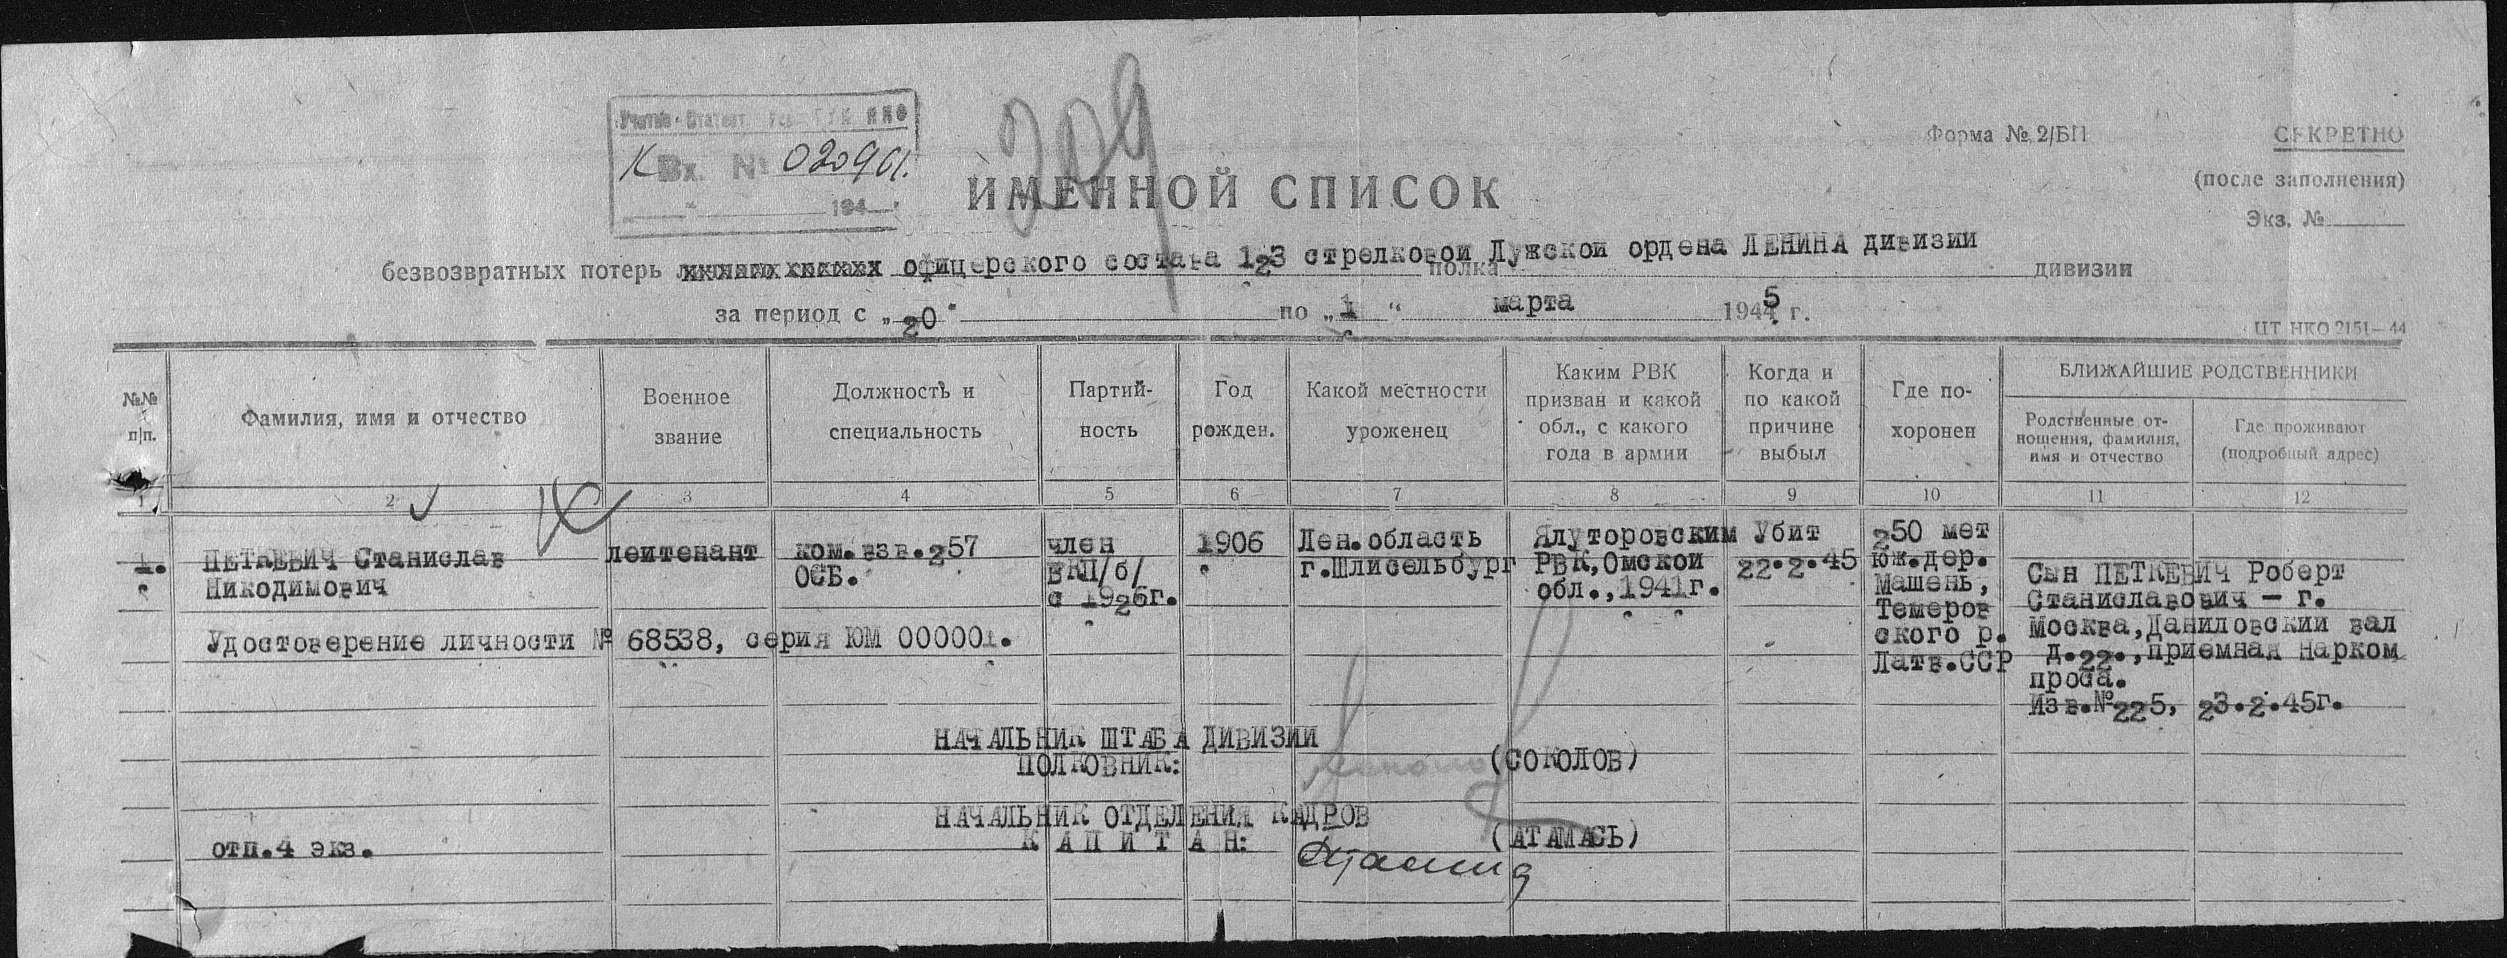 К Вх. № 020961.
194
209
Форма № 2/БП
СЕКРЕТНО
(после заполнения)
Экз. №
ИМЕННОЙ СПИСОК
безвозвратных потерь офицерского состава 123 стрелковой Лужской ордена ЛЕНИНА дивизии
полка дивизии
за период с „20“ по „1“ марта 1945 г.
ЦТ НКО 2151—44
№№ п/п.
Фамилия, имя и отчество
Военное звание
Должность и специальность
Партий-
ность
Год рожден.
Какой местности уроженец
Каким РВК
призван и какой
обл., с какого
года в армии
Когда и
по какой
причине
выбыл
Где по-
хоронен
БЛИЖАЙШИЕ РОДСТВЕННИКИ
Родственные от-
ношения, фамилия,
имя и отчество
Где проживают
(подробный адрес)
1 2 3 4 5 6 7 8 9 10 11 12
1.
ПЕТКЕВИЧ Станислав
Никодимович
лейтенант
ком.взв.257
ОСБ.
член
ВКП/б/
с 1926г.
1906
Лен.область
г.Шлисельбург
Ялуторовским
РВК,Омской
обл.,1941г.
Убит
22.2.45
250 мет
юж.дер.
Машень,
Темеров
ского р.
Латв.ССР
Сын ПЕТКЕВИЧ Роберт
Станиславович – г.
Москва,Даниловский вал
д.22.,приемная Нарком
проса.
Изв.№225, 23.2.45г.
Удостоверение личности № 68538, серия ЮМ 000001.
НАЧАЛЬНИК ШТАБА ДИВИЗИИ
ПОЛКОВНИК: (СОКОЛОВ)
НАЧАЛЬНИК ОТДЕЛЕНИЯ КАДРОВ
КАПИТАН: (АТАМАСЬ)
отп.4 экз.